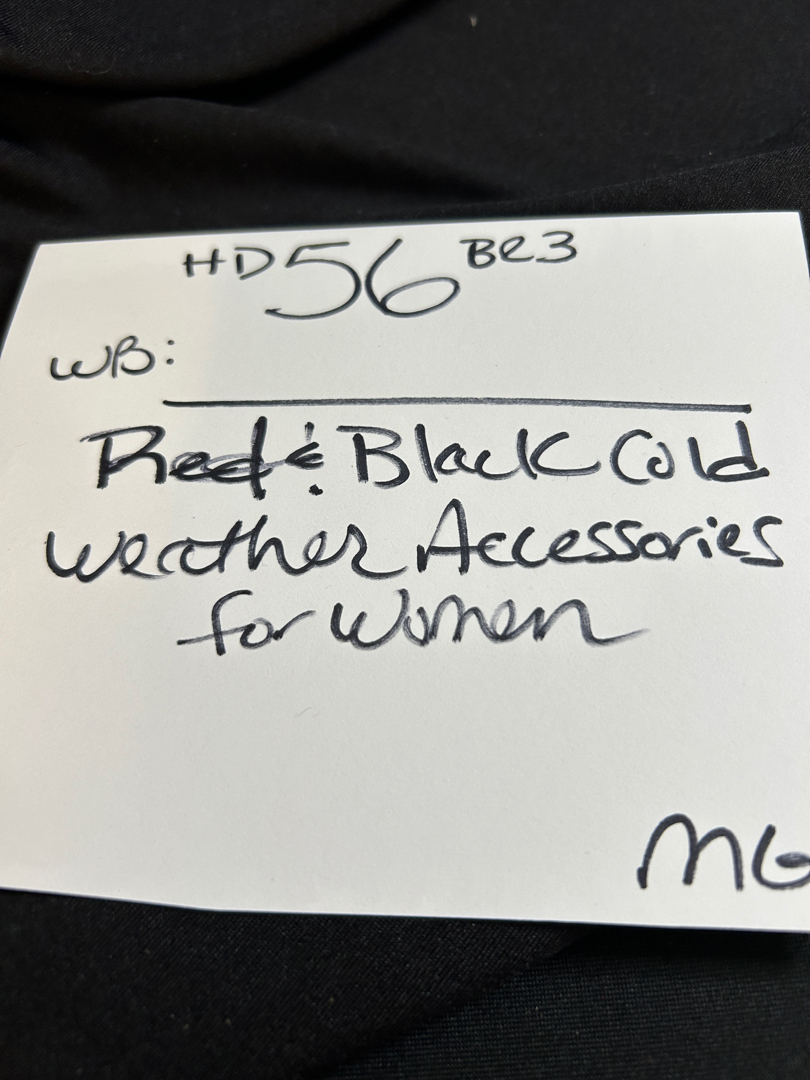 HD 56 BR3
WB:
Red & Black Cold
Weather Accessories
for Women
MG